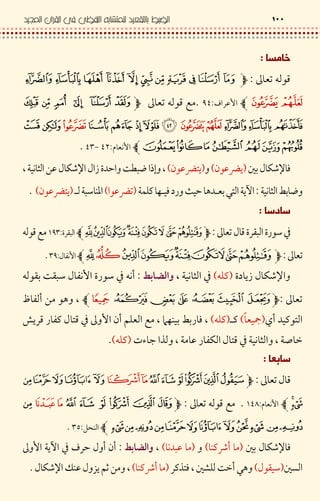 ١٠٠ الضبط بالتقعيد للمتشابه اللفظي في القرآن المجيد
خامسا :
قوله تعالى : ﴿ وَمَآ أَرۡسَلۡنَا فِي قَرۡيَةٖ مِّن نَّبِيٍّ إِلَّآ أَخَذۡنَآ أَهۡلَهَا بِٱلۡبَأۡسَآءِ وَٱلضَّرَّآءِ
لَعَلَّهُمۡ يَضَّرَّعُونَ ﴾ الأعراف: ٩٤ .مع قوله تعالى ﴿ وَلَقَدۡ أَرۡسَلۡنَآ إِلَىٰٓ أُمَمٖ مِّن قَبۡلِكَ
فَأَخَذۡنَٰهُم بِٱلۡبَأۡسَآءِ وَٱلضَّرَّآءِ لَعَلَّهُمۡ يَتَضَرَّعُونَ ٤٢ فَلَوۡلَآ إِذۡ جَآءَهُم بَأۡسُنَا تَضَرَّعُواْ وَلَٰكِن قَسَتۡ
قُلُوبُهُمۡ وَزَيَّنَ لَهُمُ ٱلشَّيۡطَٰنُ مَا كَانُواْ يَعۡمَلُونَ ﴾ الأنعام: ٤٢ - ٤٣ .
فالإشكال بين (يضرعون) و(يتضرعون) ، وإذا ضبطت واحدة زال الإشكال عن الثانية ،
وضابط الثانية : الآية التي بعدها حيث ورد فيها كلمة (تضرعوا) المناسبة لـ (يتضرعون) .
سادسا :
في سورة البقرة قال تعالى : ﴿ وَقَٰتِلُوهُمۡ حَتَّىٰ لَا تَكُونَ فِتۡنَةٞ وَيَكُونَ ٱلدِّينُ لِلَّهِ ﴾ البقرة: ١٩٣ مع قوله
تعالى : ﴿ وَقَٰتِلُوهُمۡ حَتَّىٰ لَا تَكُونَ فِتۡنَةٞ وَيَكُونَ ٱلدِّينُ كُلُّهُۥ لِلَّهِ ﴾ الأنفال: ٣٩ .
والإشكال زيادة (كله) في الثانية ، والضابط : أنه في سورة الأنفال سبقت بقوله
تعالى : ﴿ وَيَجۡعَلَ ٱلۡخَبِيثَ بَعۡضَهُۥ عَلَىٰ بَعۡضٖ فَيَرۡكُمَهُۥ جَمِيعٗا ﴾ ، وهو من ألفاظ
التوكيد أي (جميعاً) كـ(كله) ، فاربط بينهما ، مع العلم أن الأولى في قتال كفار قريش
خاصة ، والثانية في قتال الكفار عامة ، ولذا جاءت (كله).
سابعا :
قال تعالى : ﴿ سَيَقُولُ ٱلَّذِينَ أَشۡرَكُواْ لَوۡ شَآءَ ٱللَّهُ مَآ أَشۡرَكۡنَا وَلَآ ءَابَآؤُنَا وَلَا حَرَّمۡنَا مِن
شَيۡءٖ ﴾ الأنعام: ١٤٨ . مع قوله تعالى : ﴿ وَقَالَ ٱلَّذِينَ أَشۡرَكُواْ لَوۡ شَآءَ ٱللَّهُ مَا عَبَدۡنَا مِن
دُونِهِۦ مِن شَيۡءٖ نَّحۡنُ وَلَآ ءَابَآؤُنَا وَلَا حَرَّمۡنَا مِن دُونِهِۦ مِن شَيۡءٖ ﴾ النحل: ٣٥ .
فالإشكال بين (ما أشركنا) و (ما عبدنا) ، والضابط : أن أول حرف في الآية الأولى
السين (سيقول) وهي أخت للشين ، فتذكر (ما أشركنا) ، ومن ثم يزول عنك الإشكال .